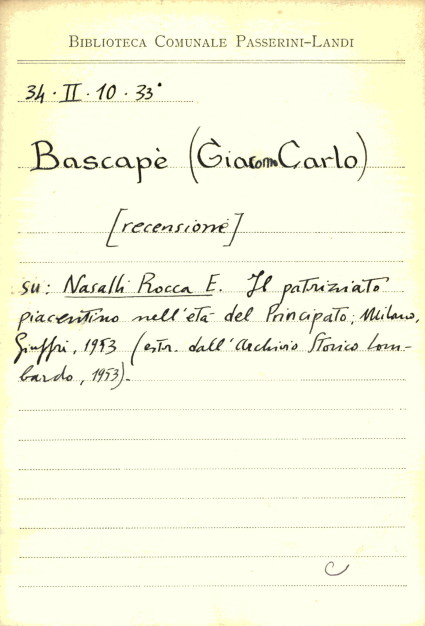 BIBLIOTECA COMUNALE PASSERINI-LANDI
34 · II · 10 · 33°
Bascapè (GiacomoCarlo)
[recensione]
su: Nasalli Rocca E. Il patriziato
piacentino nell'età del Principato; Milano,
Giuffri, 1953 (estr. dall'Archivio Storico Lom-
bardo, 1953).
C